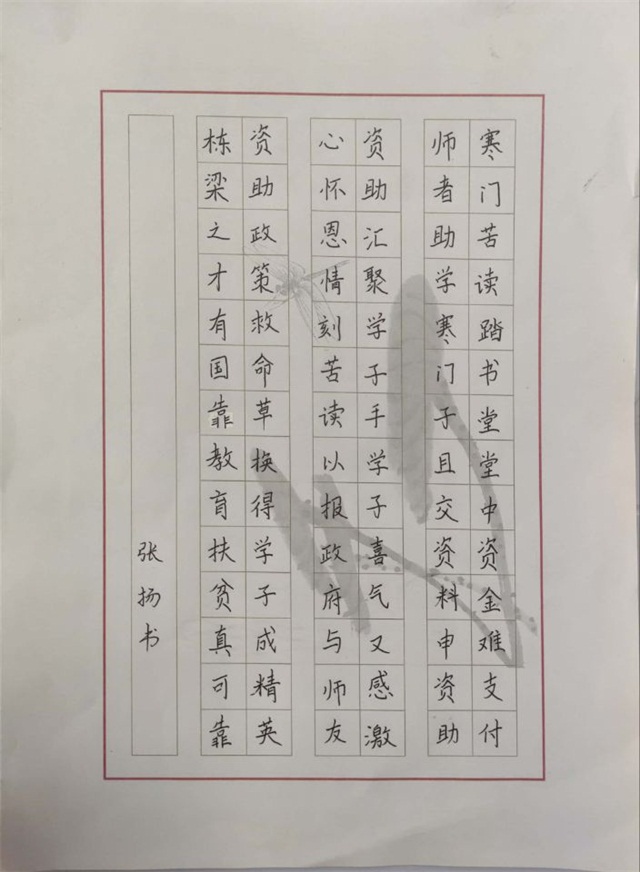 寒门苦读踏书堂堂中资金难支付
师者助学寒门子且交资料申资助
资助汇聚学子手学子喜气又感激
心怀恩情刻苦读以报政府与师友
资助政策救命草换得学子成精英
栋梁之才有国靠教育扶贫真可靠
张扬书